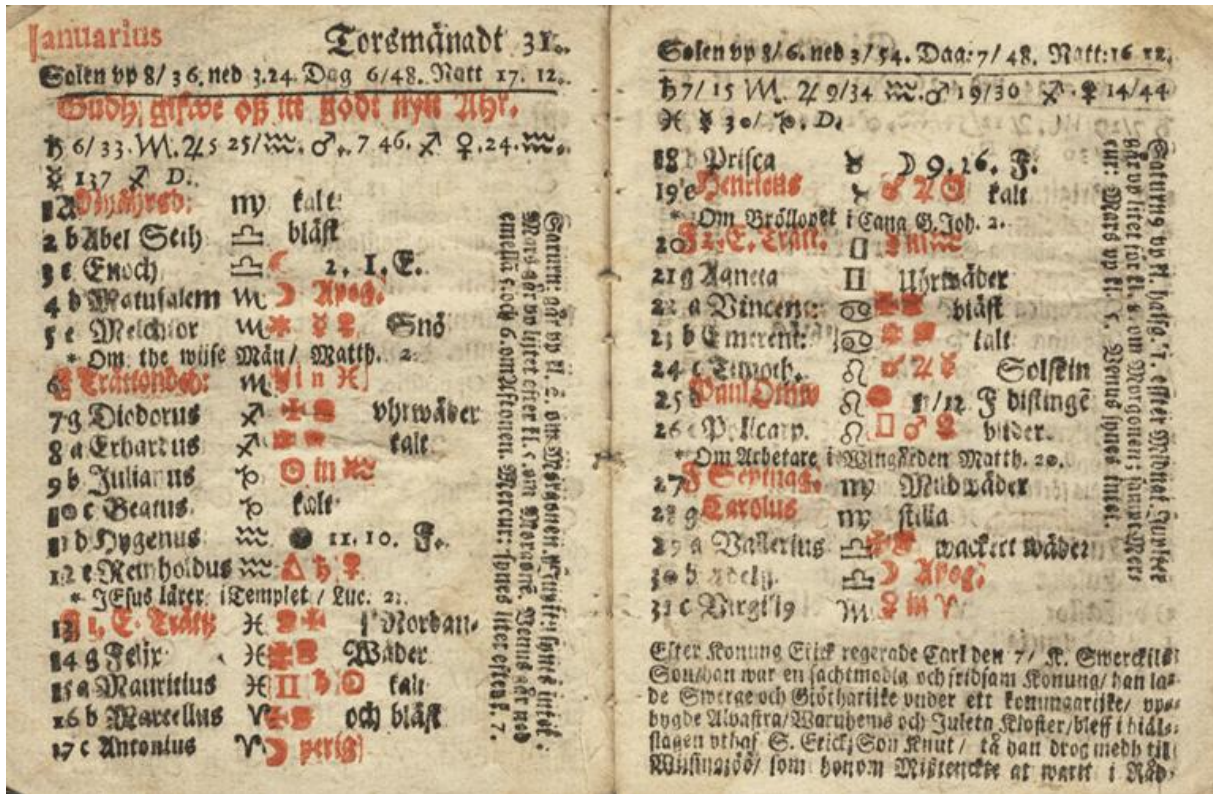 Ianuarius Torsmånadt 31.
Solen vp 8/36. ned 3.24. Dag 6/48. Natt 17. 12.
Gudh gifwe oß itt godt nytt Åhr.
♄ 6/33. ♏. ♃ 5 25/ ♒. ♂. 7 46. ♐ ♀. 24. ♒.
☿ 137 ♐ D.
1 A ♍ kalt
2 b Abel Seth ♎ bläst
3 c Enoch ♎ ☾ 2. 1. E.
4 d Matusalem ♏ ☽ Apog.
5 e Melchior ♏ * ☿ ♀ Snö
* Om the wijse Män/ Matth. 2.
6 F Trättonded: ♏ in ♓
7 g Diodorus ♐ vhrwäder
8 a Erhardus ♐ kalt
9 b Julianus ♑ ☉ in ♒
10 c Beatus. ♑ kalt
11 d Hygenus ♒ ● 11. 10. F.
12 e Reinholdus ♒ △ ♄ ♀
* JEsus lärer i Templet / Luc. 2.
13 F 1. E. Trätt ♓ Nordan-
14 g Felix ♓ Wäder
15 a Mauritius ♓ ♄ ☉ kalt
16 b Marcellus ♈ och bläst
17 c Antonius ♈ ☽ perig
Saturn: går vp kl. 2. om Morgonen.
Mars går vp litet efter kl. 5. om Morgonē. Venus går ned
emellā 5. och 6. om Aftonen. Mercur: synes litet efter k. 7.
Solen vp 8/6. ned 3/54. Dag: 7/48. Natt: 16 12.
♄ 7/15 ♏. ♃ 9/34 ♒. ♂ 19/30 ♐. ♀ 14/44
♓ ☿ 30/ ♑. D.
18 d Prisca ♉ ☽ 9. 26. F.
19 e Henricus ♉ ♂ ♃ ☉ kalt
* Om Bröllopet i Cana G. Joh. 2.
20 F 2. E. Trätt. ♊ ☿ in ♒
21 g Agneta ♊ Uhrwäder
22 a Vincent: ♋ bläst
23 b Emerent: ♋ kalt
24 c Timoth. ♌ ♂ ♃ ☿ Solskin
25 d Paul Omw ♌ 1/12 F distingē
26 e Policarp. ♌ □ ♂ ♀ blider.
* Om Arbetare i Wingården Matth. 20.
27 F Septuag. ♍ Mildwäder
28 g Carolus ♍ stilla
29 a Vallerius ♎ wackert wäder
30 b Adelg. ♎ ☽ Apog.
31 c Virgilig ♏ ♀ in ♈
Saturng vp kl. half. 1. effter Midnat. Jupiter
går vp litet för kl. 8. om Morgonen;
cur: Mars vp kl. 5. Venus synes intet.
Efter Konung Erick regerade Carl den 7/ K. Swerckils
Son/ han war en sachtmodia och fridsam Konung/ han la-
de Swerge och Giötharijke vnder ett konungarijke/ vpa-
bygde Alvastra/ Waruhems och Juleta Kloster/ bleff i hiäl-
slagen vthaf S. Erick; Son Knut / tå han drog medh til
Wisingzöö/ som honom Mißtenckte at warit i Råd-